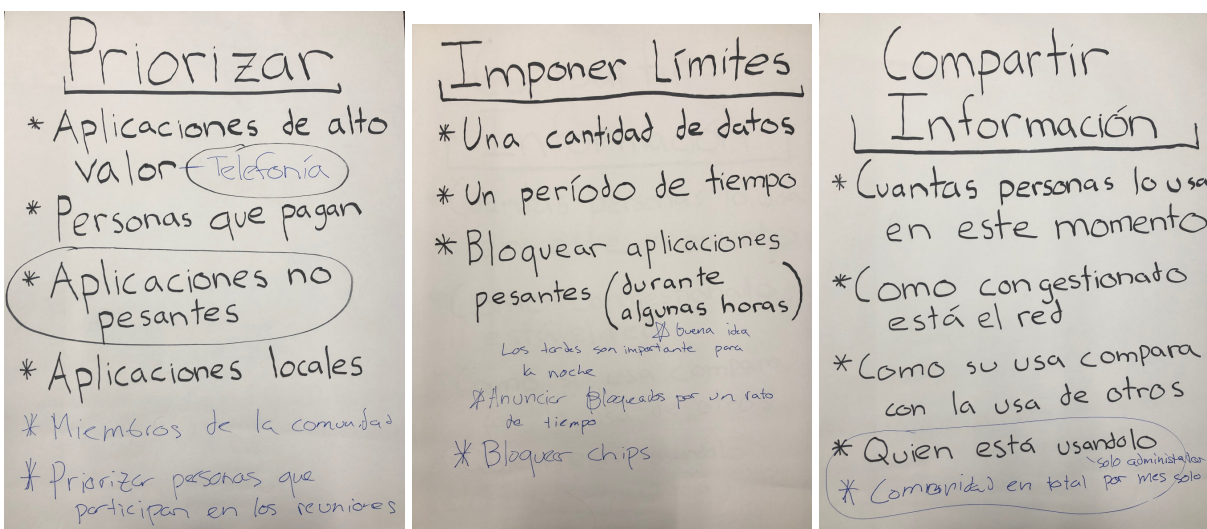 Priorizar
* Aplicaciones de alto
valor - Telefonía
* Personas que pagan
* Aplicaciones no
pesantes
* Aplicaciones locales
* Miembros de la comunidad
* Priorizar personas que
participan en los reuniones
Imponer Límites
* Una cantidad de datos
* Un período de tiempo
* Bloquear aplicaciones
pesantes (durante
algunas horas)
* buena idea
Los tardes son importante para
la noche
* Anunciar Bloqueados por un rato
de tiempo
* Bloquear chips
Compartir
Información
* Cuantas personas lo usa
en este momento
* Como congestionato
está el red
* Como su usa compara
con la usa de otros
* Quien está usandolo
solo administrador
* Comunidad en total por mes solo